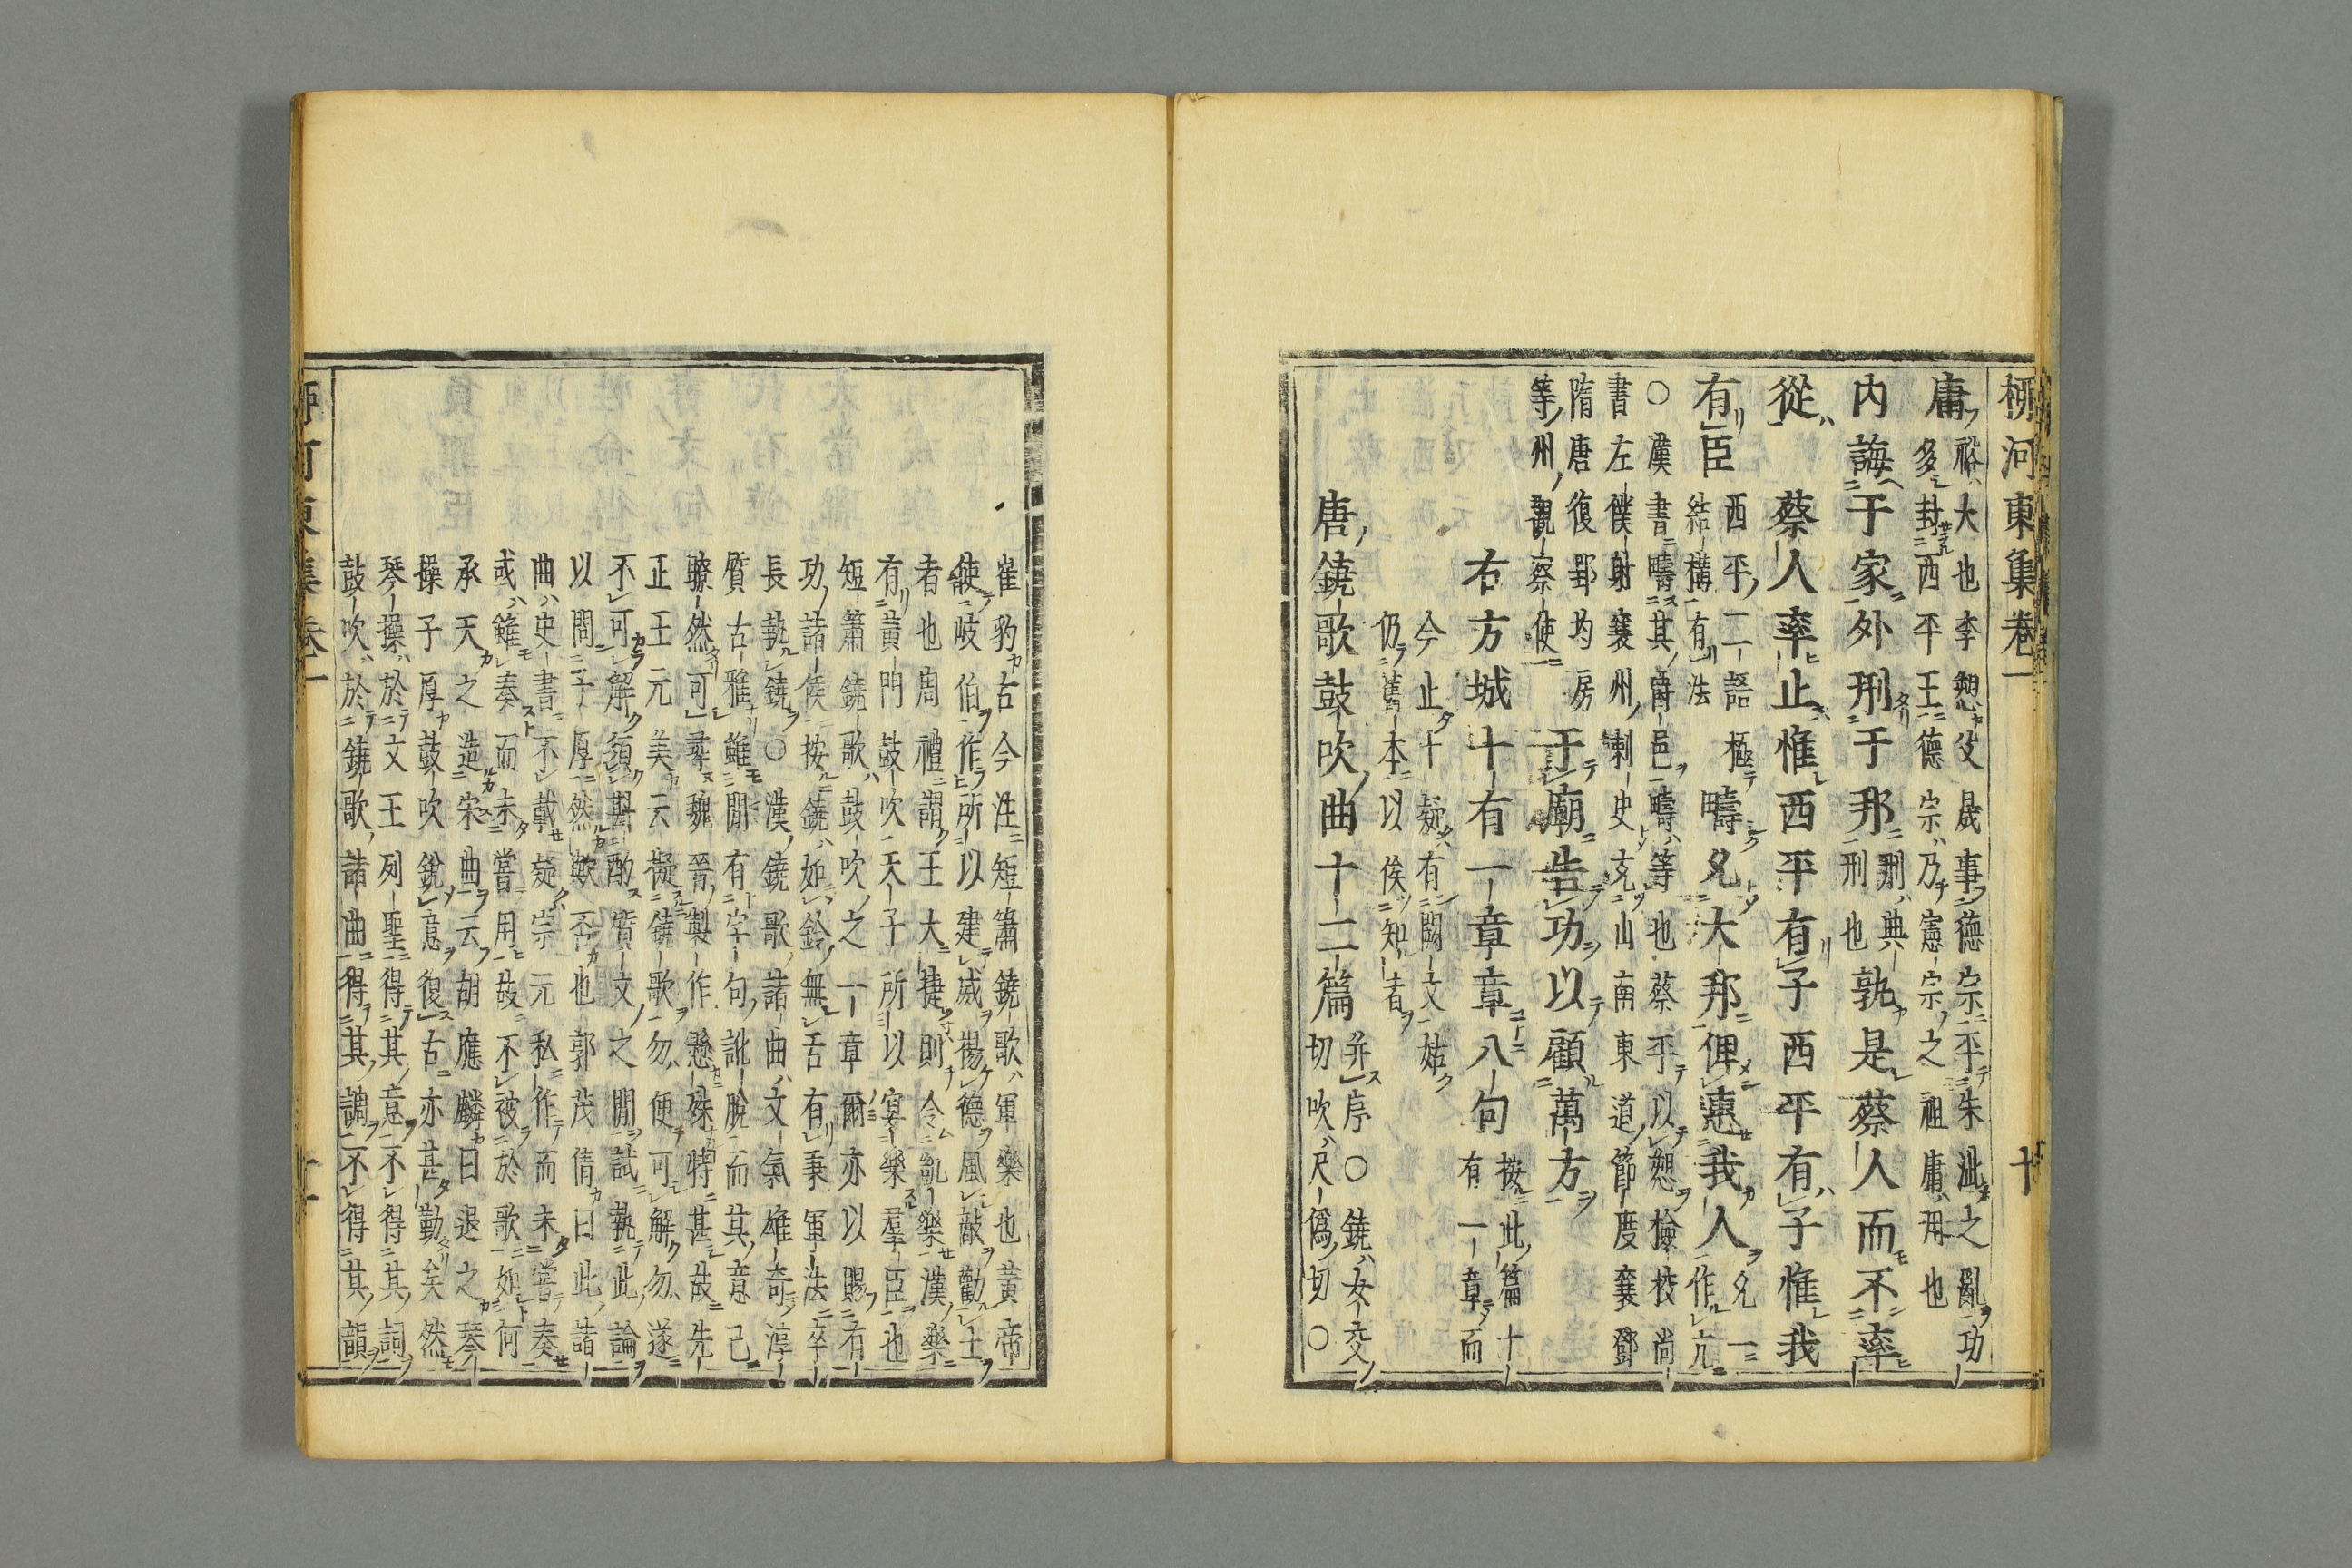 柳河東集卷一 十
庸
裕大也李愬父晟事德宗平朱泚之亂功
多封西平王德宗乃憲宗之祖庸用也
内誨于家外刑于邦
刑典
刑也
孰是蔡人而不率
從蔡人率止惟西平有子西平有子惟我
有臣
西平二語極
結構有法
疇允大邦俾惠我人
允一
作亢
○漢書疇其爵邑疇等也蔡平以愬檢校尚
書左僕射襄州刺史充山南東道節度襄鄧
隋唐復郢均房
等州觀察使
于廟告功以顧萬方
右方城十有一章章八句
按此篇十
有一章而
今止十疑有闕文姑
仍舊本以俟知者
唐鐃歌鼓吹曲十二篇
并序○鐃女交
切吹尺僞切○
崔豹古今注短簫鐃歌軍樂也黃帝
使岐伯作所以建威揚德風敵勸士
者也周禮謂王大捷則令凱樂漢樂
有黃門鼓吹天子所以宴樂羣臣也
短簫鐃歌鼓吹之一章爾亦以賜有
功諸侯按鐃如鈴無舌有秉軍法卒
長執鐃○漢鐃歌諸曲文氣雄奇淳
質古雅雖間有字句訛脫而其意己
瞭然可尋魏晉製作懸殊特甚故先
正王元美云擬鐃歌勿便可解勿遂
不可解須斟酌質文之間試執此論
以問子厚然歟否也郭茂倩曰此諸
曲史書不載疑宗元私作而未嘗奏
或雖奏而未嘗用故不被於歌如何
承天之造宋曲云胡應麟曰退之琴
操子厚鼓吹銳意復古亦甚勤矣然
琴操於文王列聖得其意不得其詞
鼓吹於鐃歌諸曲得其調不得其韻